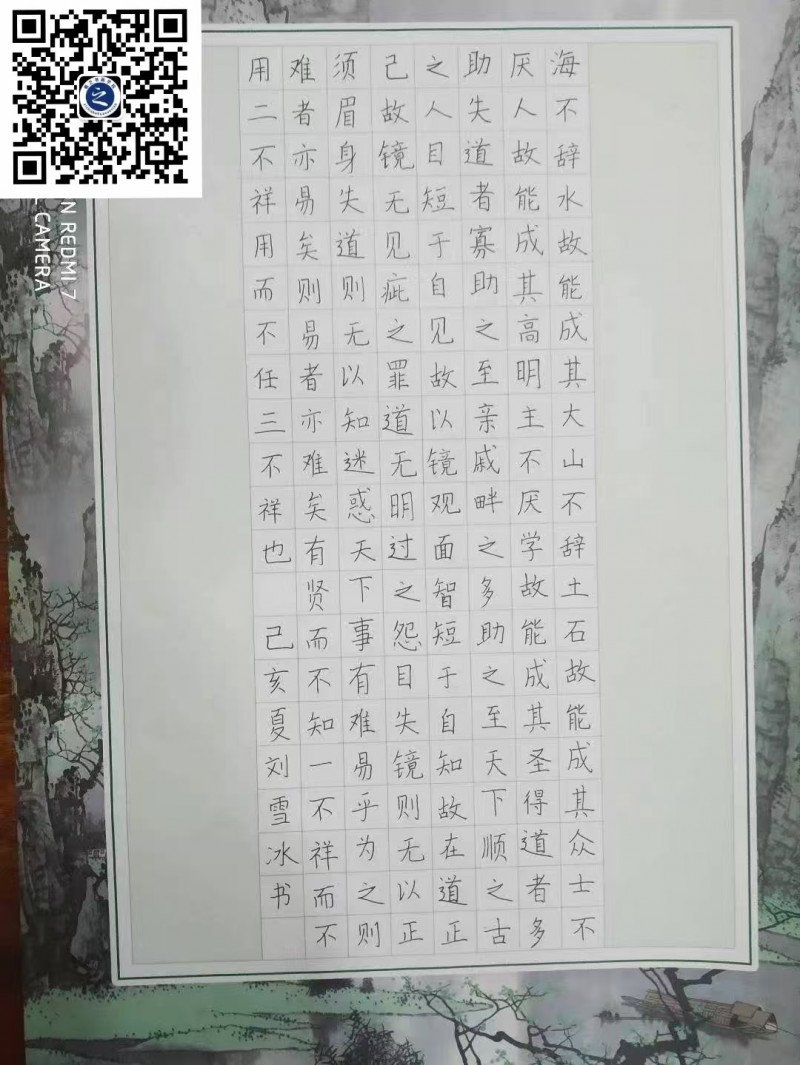 海不辞水故能成其大山不辞土石故能成其众士不
厌人故能成其高明主不厌学故能成其圣得道者多
助失道者寡助之至亲戚畔之多助之至天下顺之古
之人目短于自见故以镜观面智短于自知故在道正
己故镜无见疵之罪道无明过之怨目失镜则无以正
须眉身失道则无以知迷惑天下事有难易乎为之则
难者亦易矣则易者亦难矣有贤而不知一不祥而不
用二不祥用而不任三不祥也
己亥夏刘雪冰书
N REDMI 7
CAMERA